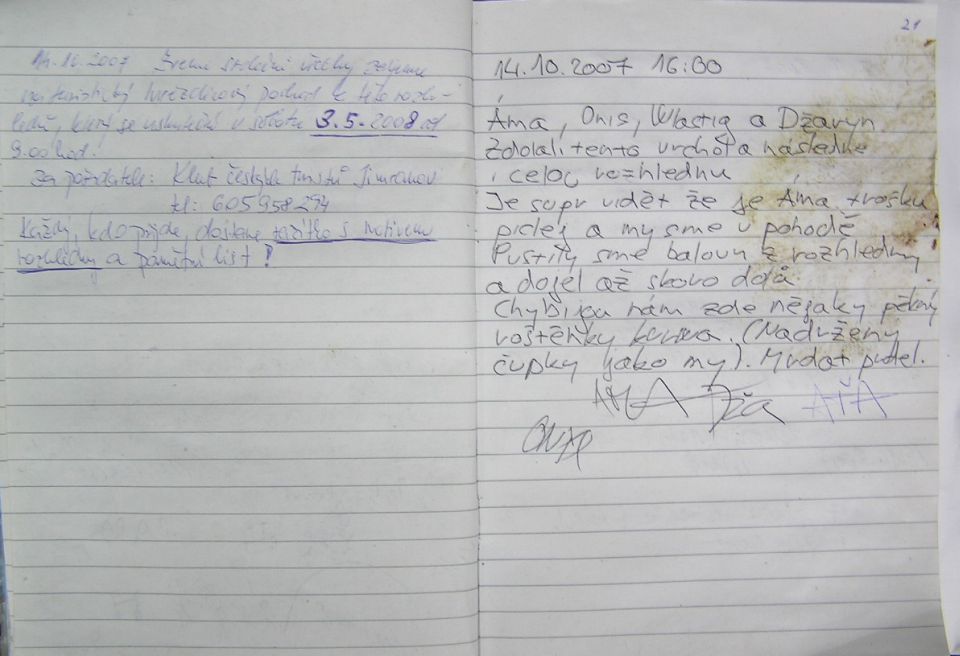 14.10.2007 Srdečně všechny zveme
na turistický hvězdicový pochod k této rozhl-
ledně, který se uskuteční v sobotu 3.5.2008 od
9.00 hod.
Za pořadatele: Klub českých turistů Jimramov
tel: 605 958 274
Každý, kdo přijde, dostane razítko s motivem
rozhledny a pamětní list!
21
14.10.2007 16:00
Áma, Onis, Wlastig a Džavyn
Zdolali tento vrchol a následně
i celou rozhlednu
Je supr vidět že je Áma trošku
a my sme v pohodě
Pustily sme baloun z rozhledny
a dojel až skoro dolů
Chybijou nám zde nějaky pěkný
roštěnky kurwa. (Nadrženy
čupky jako my). Mrdat pudel.
AMA Dža AŤA